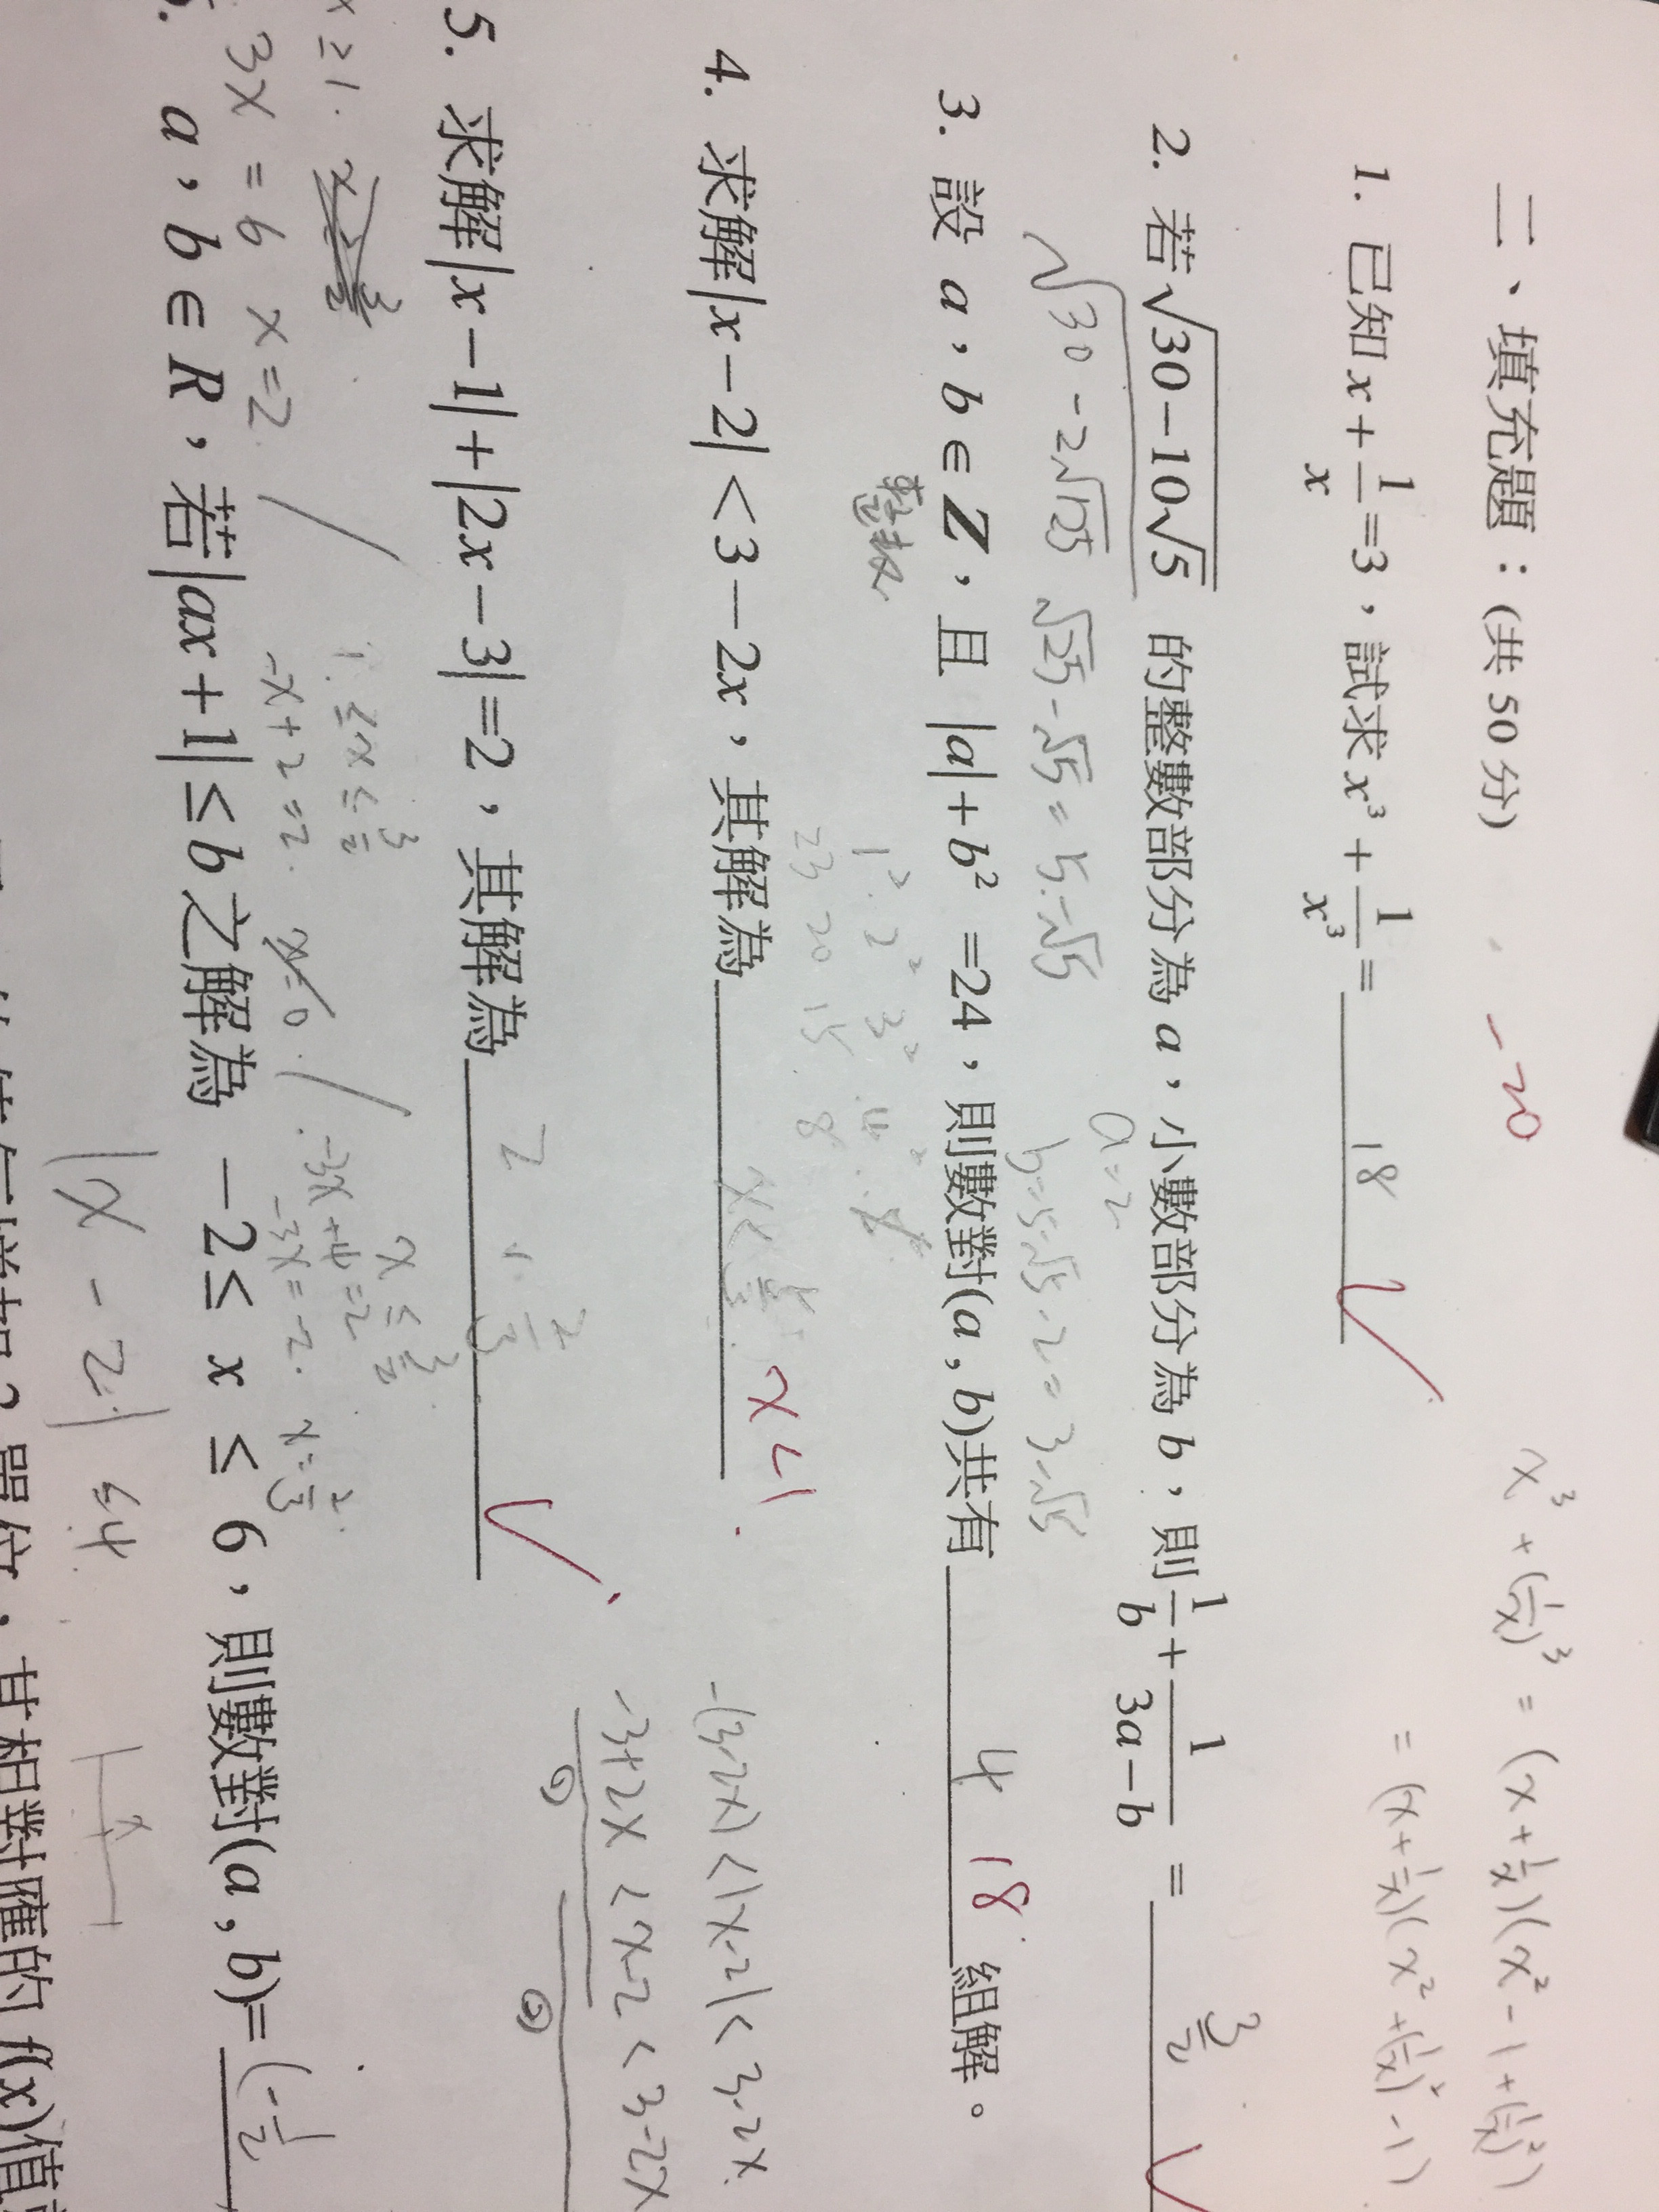 二、填充題：(共 50 分)
-20
1. 已知 x + 1/x = 3，試求 x³ + 1/x³ = 18
x³ + (1/x)³ = (x + 1/x)(x² - 1 + (1/x)²)
= (x + 1/x)(x² + (1/x)² - 1)
2. 若√(30-10√5) 的整數部分為 a，小數部分為 b，則 1/b + 1/(3a-b) = 3/2
√(30-2√125) √25-√5 = 5-√5
a=2
b=5-√5-2=3-√5
3. 設 a，b ∈ Z，且 |a| + b² = 24，則數對(a , b)共有 4 18 組解。
整數
1². 2². 3². 4².
23 20 15 8
4. 求解|x-2| < 3-2x，其解為 x< 5/3 x<1
-(3-2x) < |x-2| < 3-2x
-3+2x < x-2 < 3-2x
5. 求解|x-1|+|2x-3|=2，其解為 2 , 2/3
x≥1.
3x=6 x=2
1 ≤ x ≤ 3/2
-x+2=2. x=0.
x ≤ 3/2
-3x+4=2
-3x=-2. x=2/3.
a，b ∈ R，若|ax+1| ≤ b 之解為 -2 ≤ x ≤ 6，則數對(a , b)= (-1/2
|x-2| ≤ 4
單位，其相對應的 f(x)值